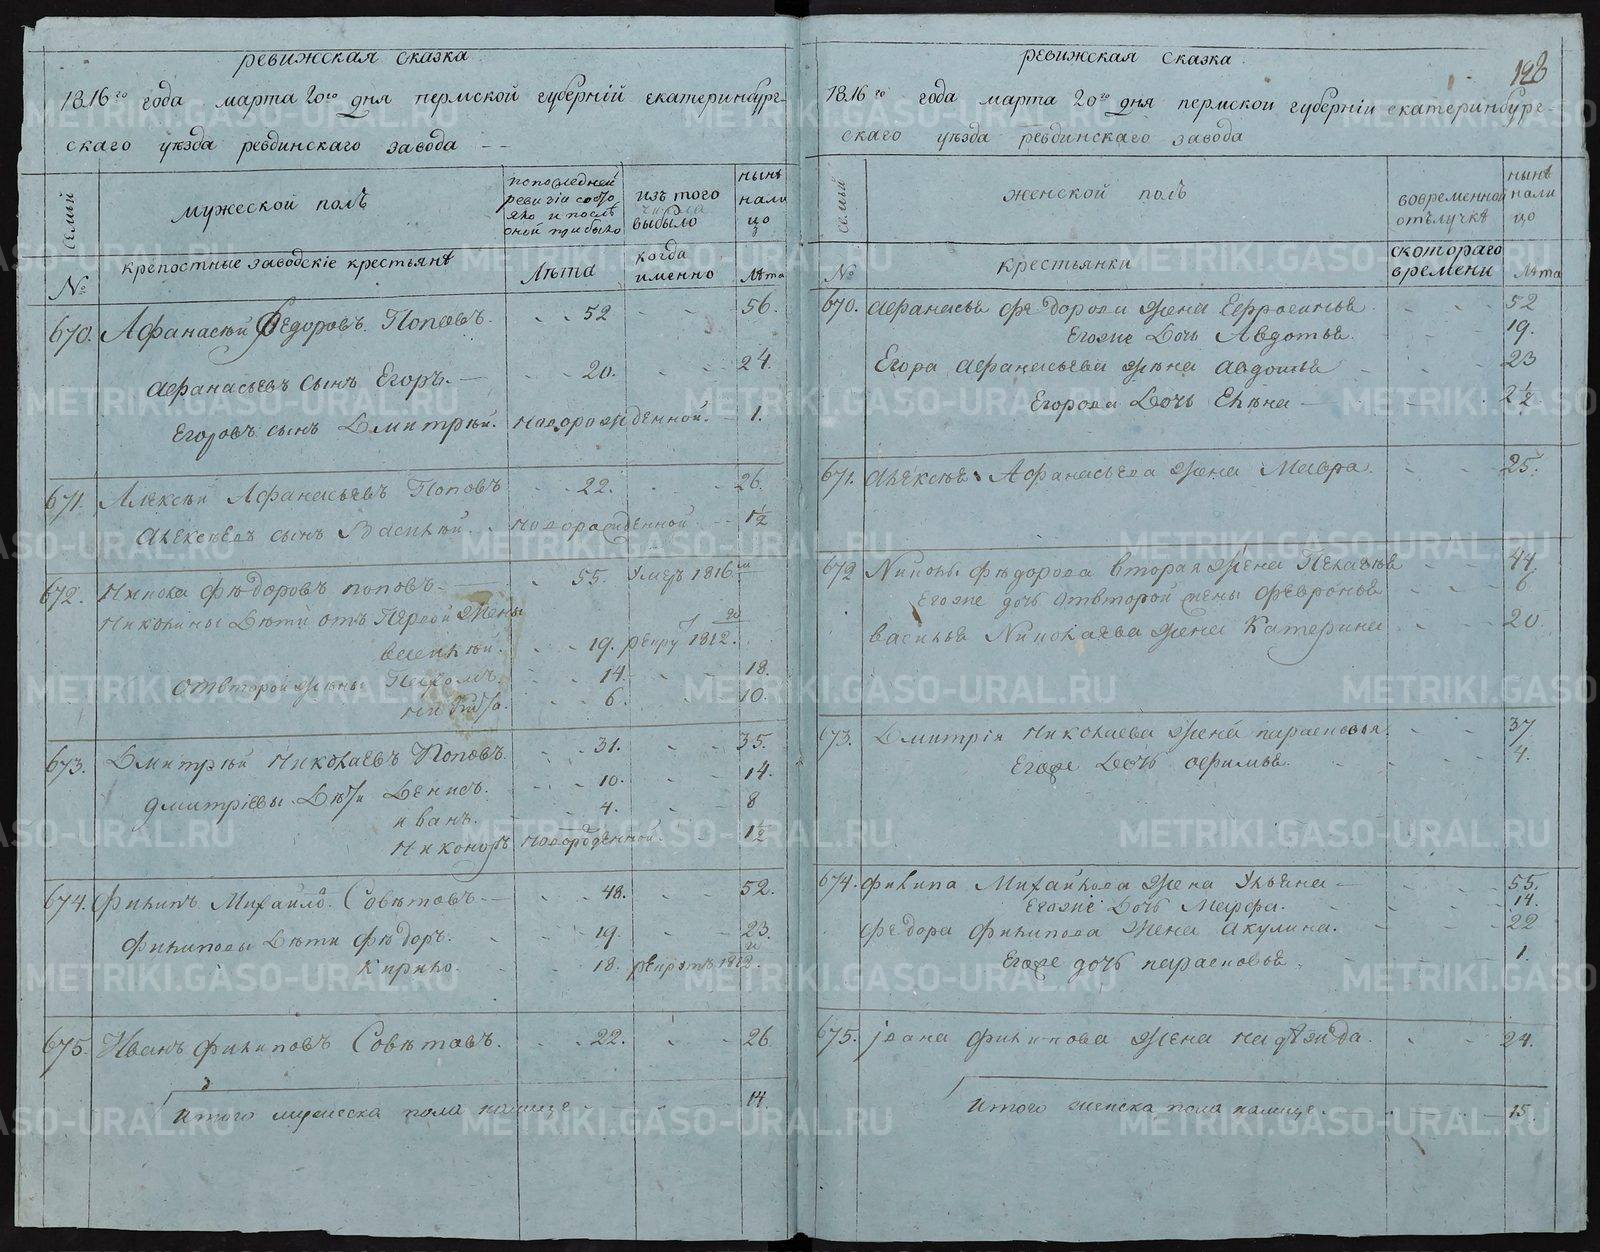 ревижская сказка
1816го года марта 20го дня пермской губерній екатеринбург-
скаго уѣзда ревдинскаго завода
семьи
мужеской полъ
попоследней
ревизіи состо
яло и послѣ
оной прибыло
изъ того
числа
выбыло
нынѣ
нали
цо
№
крепостные заводскіе крестьянѣ
Лѣта
когда
именно
Лѣта
670. Афанасий Федоровъ Поповъ. 52 56.
Афанасьевъ сынъ Егоръ. 20. 24.
Егоровъ сынъ Дмитрѣй. новорожденной. 1.
671. Алексѣй Афанасьевъ Поповъ 22. 26.
Алексѣевъ сынъ Василѣй. новорожденной 1½
672. Никола фѣдоровъ поповъ 55. Умеръ 1816
Николины Дѣти отъ Первой Жены
василѣй. 19. рекру 1812.
отвторой жѣны Пахомъ. 14. 18.
Никита. 6. 10.
673. Дмитрѣй Николаевъ Поповъ. 31. 35.
дмитріевы Дѣти Денисъ. 10. 14.
иванъ. 4. 8
Никоноръ новорожденной. 1½
674. Филипъ Михайло. Совѣтовъ. 48. 52.
Филиповы Дѣти фѣдоръ. 19. 23.
Кирило. 18. рекрутъ 1812.
675. Иванъ филиповъ Совѣтовъ. 22. 26
Итого мужеска пола налице 14.
ревижская сказка
123
1816го года марта 20го дня пермской губерніи екатеринбург-
скаго уѣзда ревдинскаго завода
семьи
женской полъ
вовременной
отълучкѣ
нынѣ
нали
цо
№
крестьянки
скотораго
времени
Лѣта
670. Афанасья федорова жена Ефросинья 52
Егоже Дочь Авдотья. 19.
Егора Афанасьева жѣна Авдотья 23
Егорова Дочь Елѣна 2½
671. Алексѣя Афанасьева жена Мавра. 25.
672 Николы Фѣдорова вторая жена Пелагѣя 44.
Егоже дочь отвторой жены Февронья 6
василья Николаева жена Катерина 20.
673. Дмитрія Николаева жена парасковья. 37
Егоже Дочь афимья. 4.
674. Филипа Михайлова жена Ульяна 55.
Егоже Дочь Марфа. 14.
Федора филипова жена Акулина. 22
Егоже дочь парасковья. 1.
675. Івана филипова жена надѣжда. 24.
Итого женска пола налице. 15
METRIKI.GASO-URAL.RU